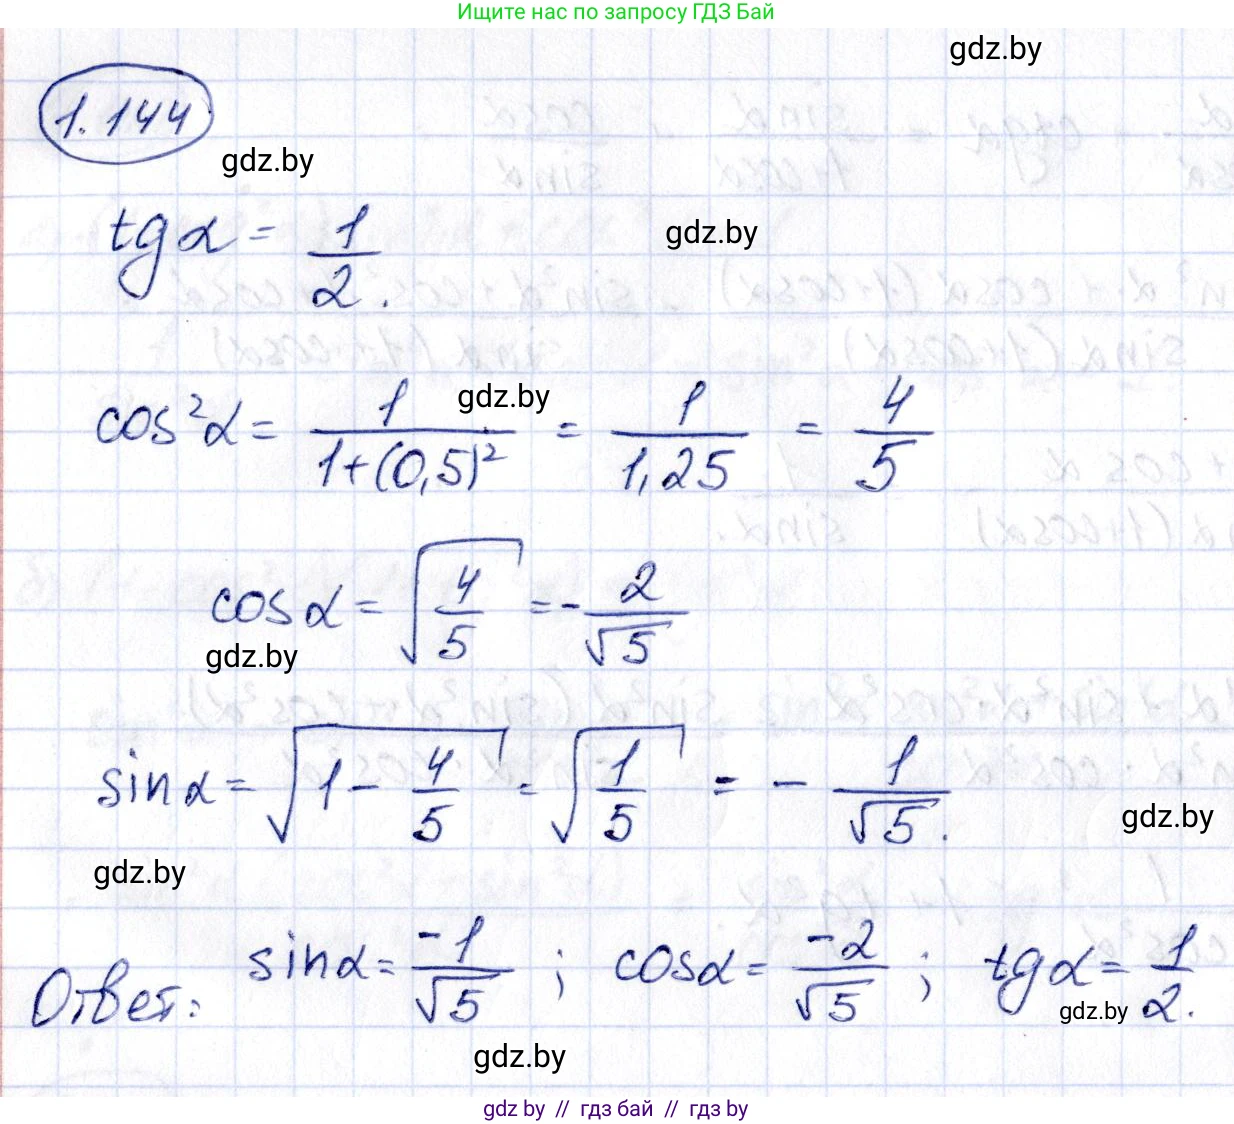 Ищите нас по запросу ГДЗ Бай
gdz.by
1.144
gdz.by
tgα = 1/2.
gdz.by
cos²α = 1/(1+(0,5)²) = 1/1,25 = 4/5
gdz.by
cosα = √(4/5) = -2/√5
gdz.by
sinα = √(1 - 4/5) = √(1/5) = - 1/√5.
gdz.by
gdz.by
Ответ: sinα = -1/√5 ; cosα = -2/√5 ; tgα = 1/2.
gdz.by
gdz.by
gdz by // гдз бай // гдз by